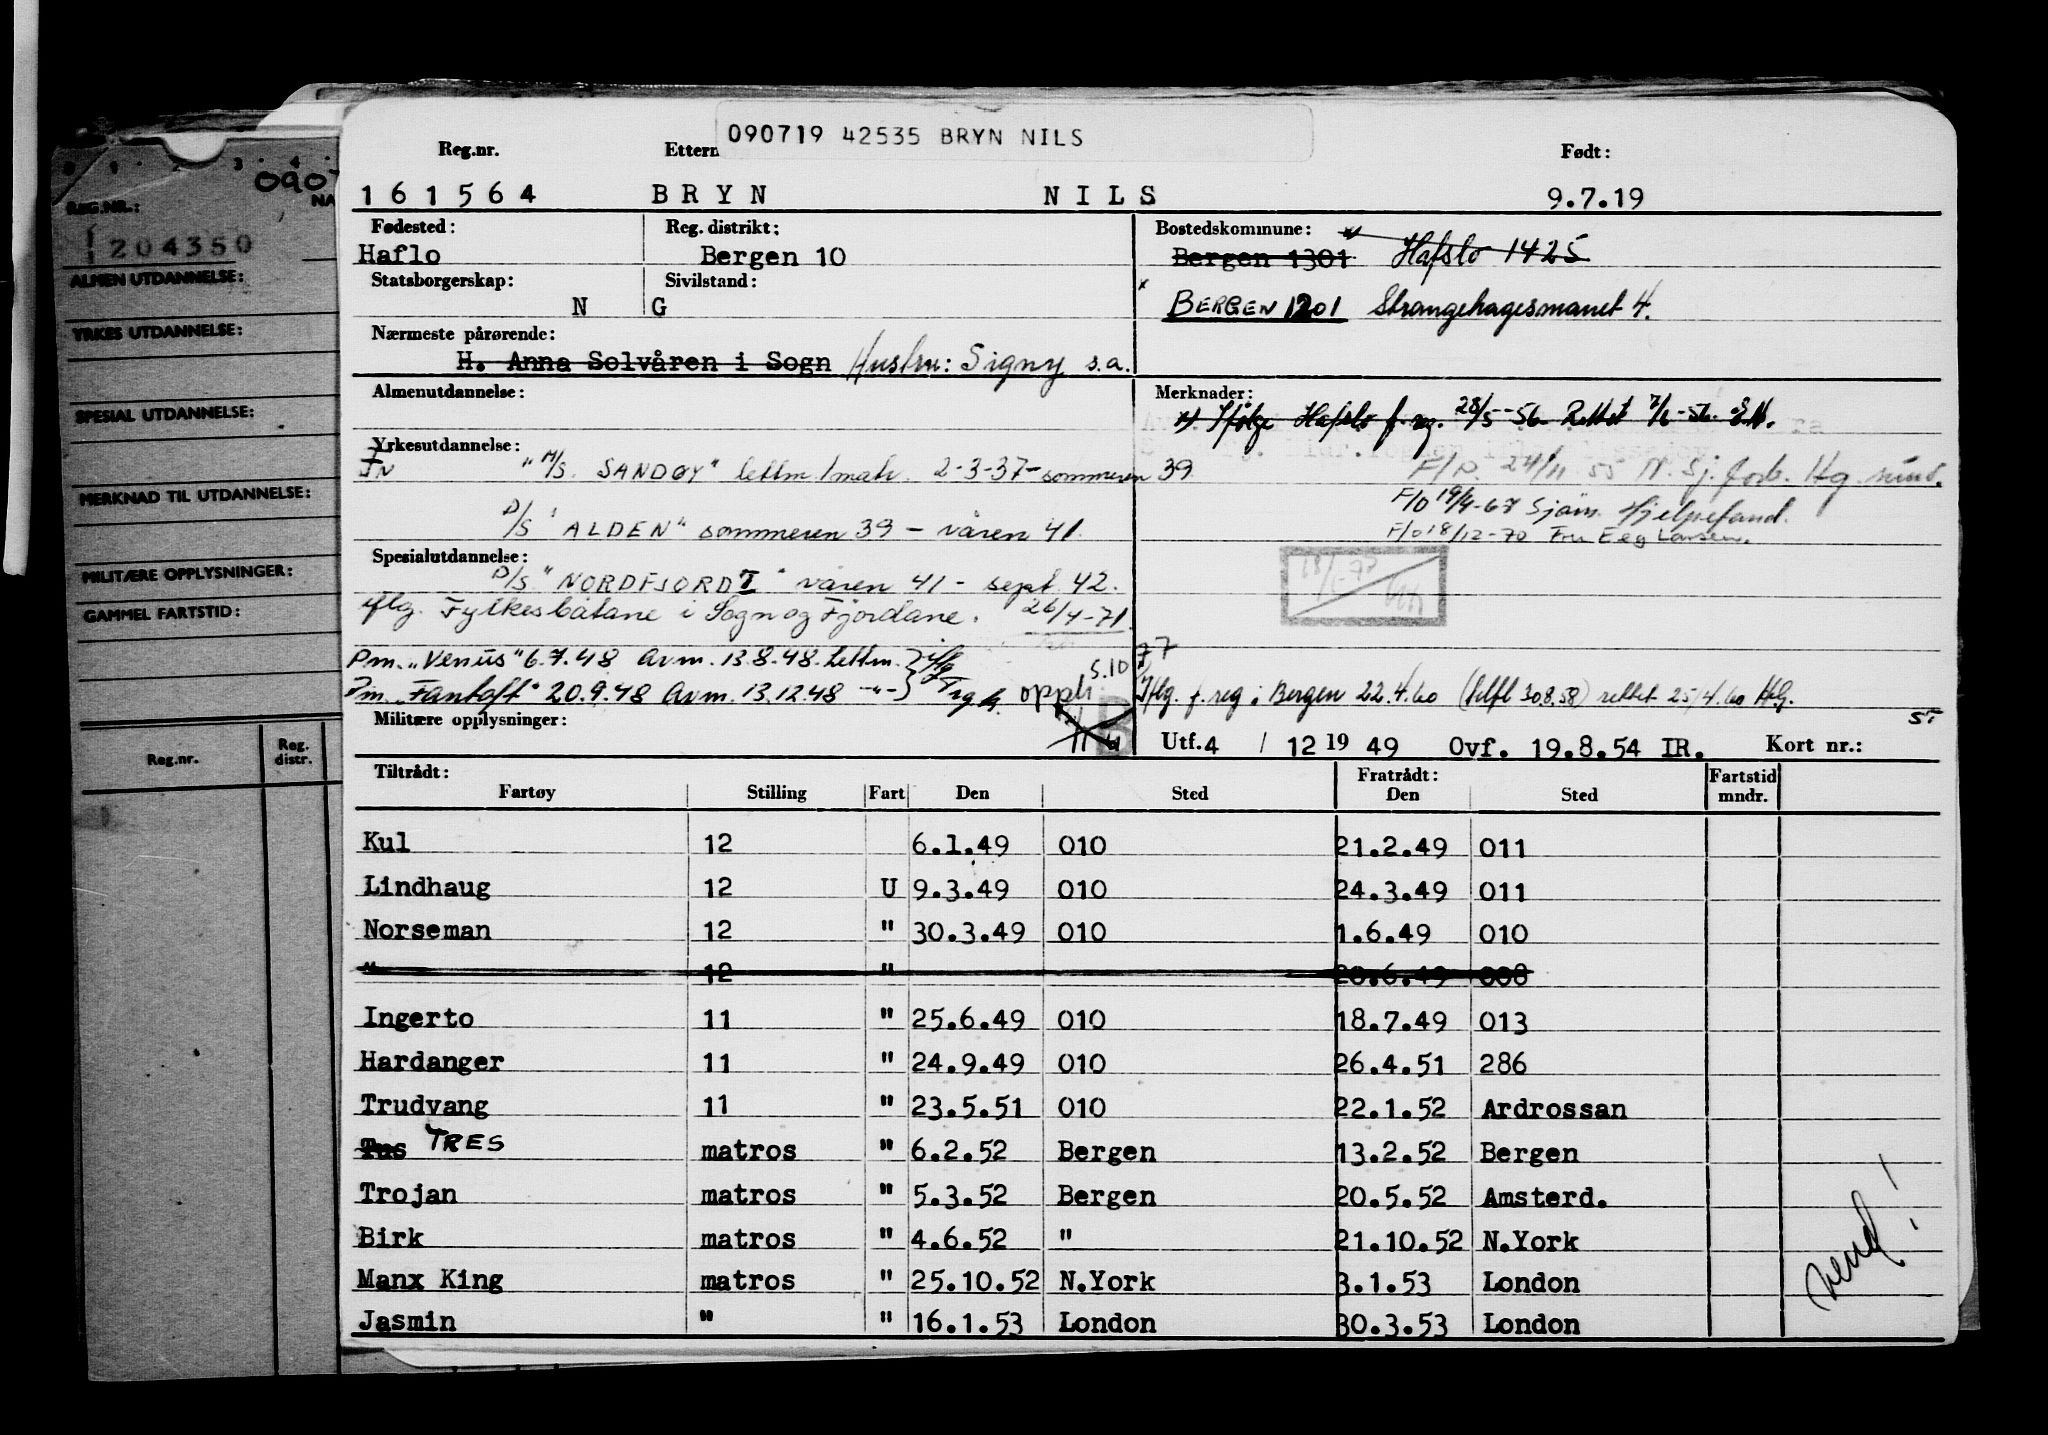 090719 42535 BRYN NILS
Reg.nr. Ettern Født:
161564 BRYN NILS 9.7.19
Fødested: Reg. distrikt: Bostedskommune:
Haflo Bergen 10 Bergen 1301 Hafslo 1425
Statsborgerskap: Sivilstand:
N G BERGEN 1201 Strangehagesmauet 4.
Nærmeste pårørende:
H. Anna Solvåren i Sogn Hustru: Signy s.a.
Almenutdannelse: Merknader:
x). Ifølge Hafslo f.reg. 28/5-56 Rettet 7/6-56.
Yrkesutdannelse:
"M/S. SANDØY" lettm/matr. 2-3-37-sommeren 39
F/O. 24/11 55 N. Sj. forb. Hg.sund.
F/O 19/4-67 Sjøm. Hjelpefond.
P/S "ALDEN" sommeren 39 - våren 41.
F/O 18/12-70 Fru Eeg Larsen.
Spesialutdannelse:
P/S. "NORDFJORD I" våren 41 - sept. 42.
iflg. Fylkesbåtane i Sogn og Fjordane. 26/4-71.
Pm. "Venus" 6.7.48 Avm. 13.8.48. Lettm.
Pm. "Fantoft" 20.9.48 Avm. 13.12.48 -"-
S.10 77
oppl.
Iflg. f.reg i Bergen 22.4.60 (tilfl 30.8.58) rettet 25/4.60 HG.
Militære opplysninger:
Utf. 4 / 12 19 49 Ovf. 19.8.54 IR. Kort nr.:
Tiltrådt: Fratrådt: Fartstid
Fartøy Stilling Fart Den Sted Den Sted mndr.
Kul 12 6.1.49 010 21.2.49 011
Lindhaug 12 U 9.3.49 010 24.3.49 011
Norseman 12 " 30.3.49 010 1.6.49 010
" 12 " 20.6.49 008
Ingerto 11 " 25.6.49 010 18.7.49 013
Hardanger 11 " 24.9.49 010 26.4.51 286
Trudvang 11 " 23.5.51 010 22.1.52 Ardrossan
Tus TRES matros " 6.2.52 Bergen 13.2.52 Bergen
Trojan matros " 5.3.52 Bergen 20.5.52 Amsterd.
Birk matros " 4.6.52 " 21.10.52 N.York
Manx King matros " 25.10.52 N.York 3.1.53 London
Jasmin " " 16.1.53 London 30.3.53 London
vend!
REG.NR.:
204350
ALMEN UTDANNELSE:
YRKES UTDANNELSE:
SPESIAL UTDANNELSE:
MERKNAD TIL UTDANNELSE:
MILITÆRE OPPLYSNINGER:
GAMMEL FARTSTID:
Reg.nr. Reg. distr.